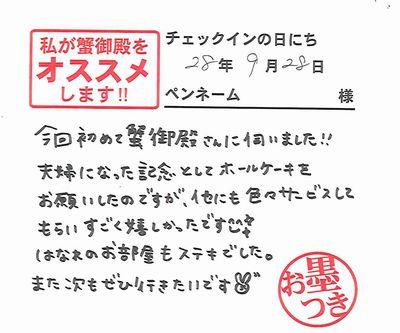 私が蟹御殿を
オススメ
します!!
チェックインの日にち
28年 9月28日
ペンネーム 様
今回初めて蟹御殿さんに伺いました!!
夫婦になった記念としてホールケーキを
お願いしたのですが、他にも色々サービスして
もらいすごく嬉しかったです
はなれのお部屋もステキでした。
また次もぜひ行きたいです
お墨つき